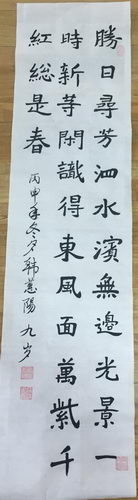 勝日尋芳泗水濱無邊光景一
時新等閑識得東風面萬紫千
紅総是春
丙申年冬月韩蕙陽 九岁